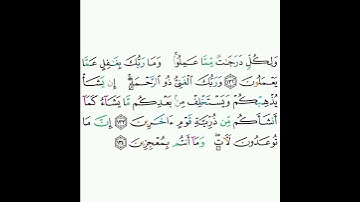 وَلِكُلٍّ دَرَجَٰتٌ مِّمَّا عَمِلُوا۟ ۚ وَمَا رَبُّكَ بِغَٰفِلٍ عَمَّا
يَعْمَلُونَ ١٣٢ وَرَبُّكَ ٱلْغَنِىُّ ذُو ٱلرَّحْمَةِ ۚ إِن يَشَأْ
يُذْهِبْكُمْ وَيَسْتَخْلِفْ مِنۢ بَعْدِكُم مَّا يَشَآءُ كَمَآ
أَنشَأَكُم مِّن ذُرِّيَّةِ قَوْمٍ ءَاخَرِينَ ١٣٣ إِنَّ مَا
تُوعَدُونَ لَءَاتٍ ۖ وَمَآ أَنتُم بِمُعْجِزِينَ ١٣٤